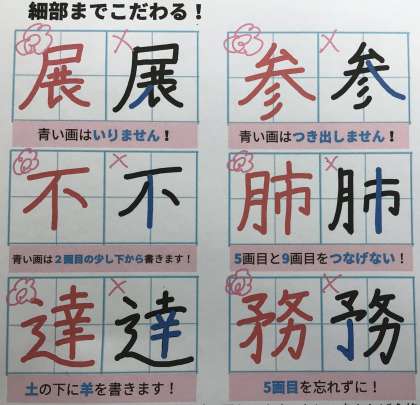 細部までこだわる！
展 展 参 参
青い画はいりません！ 青い画はつき出しません！
不 不 肺 肺
青い画は２画目の少し下から書きます！ 5画目と9画目をつなげない！
達 達 務 務
土の下に羊を書きます！ 5画目を忘れずに！